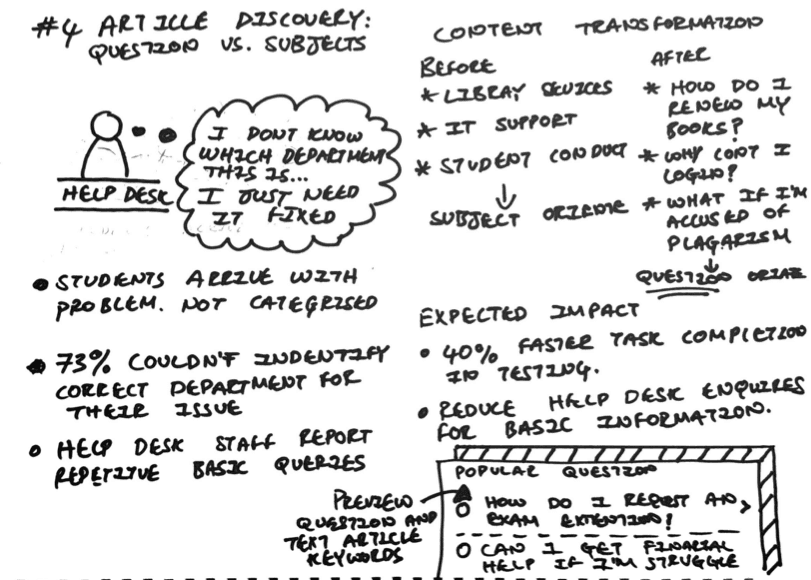 #4 ARTICLE DISCOVERY:
QUESTION VS. SUBJECTS
HELP DESK
I DONT KNOW
WHICH DEPARTMENT
THIS IS...
I JUST NEED
IT FIXED
• STUDENTS ARRIVE WITH
PROBLEM. NOT CATEGRISED
• 73% COULDN'T INDENTIFY
CORRECT DEPARTMENT FOR
THEIR ISSUE
• HELP DESK STAFF REPORT
REPETITVE BASIC QUERIES
CONTENT TRANSFORMATION
BEFORE
* LIBRAY SEVICES
* IT SUPPORT
* STUDENT CONDUCT
↓
SUBJECT ORIENTE
AFTER
* HOW DO I
RENEW MY
BOOKS?
* WHY CONT I
LOGIN?
* WHAT IF I'M
ACCUSED OF
PLAGARISM
↓
QUESTION
EXPECTED IMPACT
• 40% FASTER TASK COMPLETION
IN TESTING.
• REDUCE HELP DESK ENQUIRES
FOR BASIC INFORMATION.
POPULAR QUESTION
HOW DO I REQUEST AN >
EXAM EXTENTION?
CAN I GET FINANIAL
HELP IF I'M STRUGGLE
PREVIEW
QUESTION AND
TEXT ARTICLE
KEYWORDS